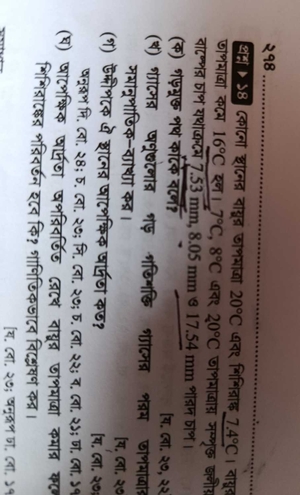 ২৭৪
প্রশ্ন ▸ ১৪ কোনো স্থানের বায়ুর তাপমাত্রা 20°C এবং শিশিরাঙ্ক 7.4°C। বায়ুর
তাপমাত্রা কমে 16°C হল। 7°C, 8°C এবং 20°C তাপমাত্রায় সম্পৃক্ত জলীয়
বাষ্পের চাপ যথাক্রমে 7.53 mm, 8.05 mm ও 17.54 mm পারদ চাপ।
(ক) গড়মুক্ত পথ কাকে বলে? [ব. বো. ২৩, ২২
(খ) গ্যাসের অণুগুলোর গড় গতিশক্তি গ্যাসের পরম তাপমাত্রার
সমানুপাতিক-ব্যাখ্যা কর। [য. বো. ২৩
(গ) উদ্দীপকে ঐ স্থানের আপেক্ষিক আর্দ্রতা কত? [য. বো. ২৩
অনুরূপ দি. বো. ২৪; চ. বো. ২৩; সি. বো. ২৩; চ. বো ২২; ব. বো. ২২; ঢা. বো. ১৭
(ঘ) আপেক্ষিক আর্দ্রতা অপরিবর্তিত রেখে বায়ুর তাপমাত্রা কমার ফলে
শিশিরাঙ্কের পরিবর্তন হবে কি? গাণিতিকভাবে বিশ্লেষণ কর।
[য. বো. ২৩; অনুরূপ ঢা. বো. ১৭